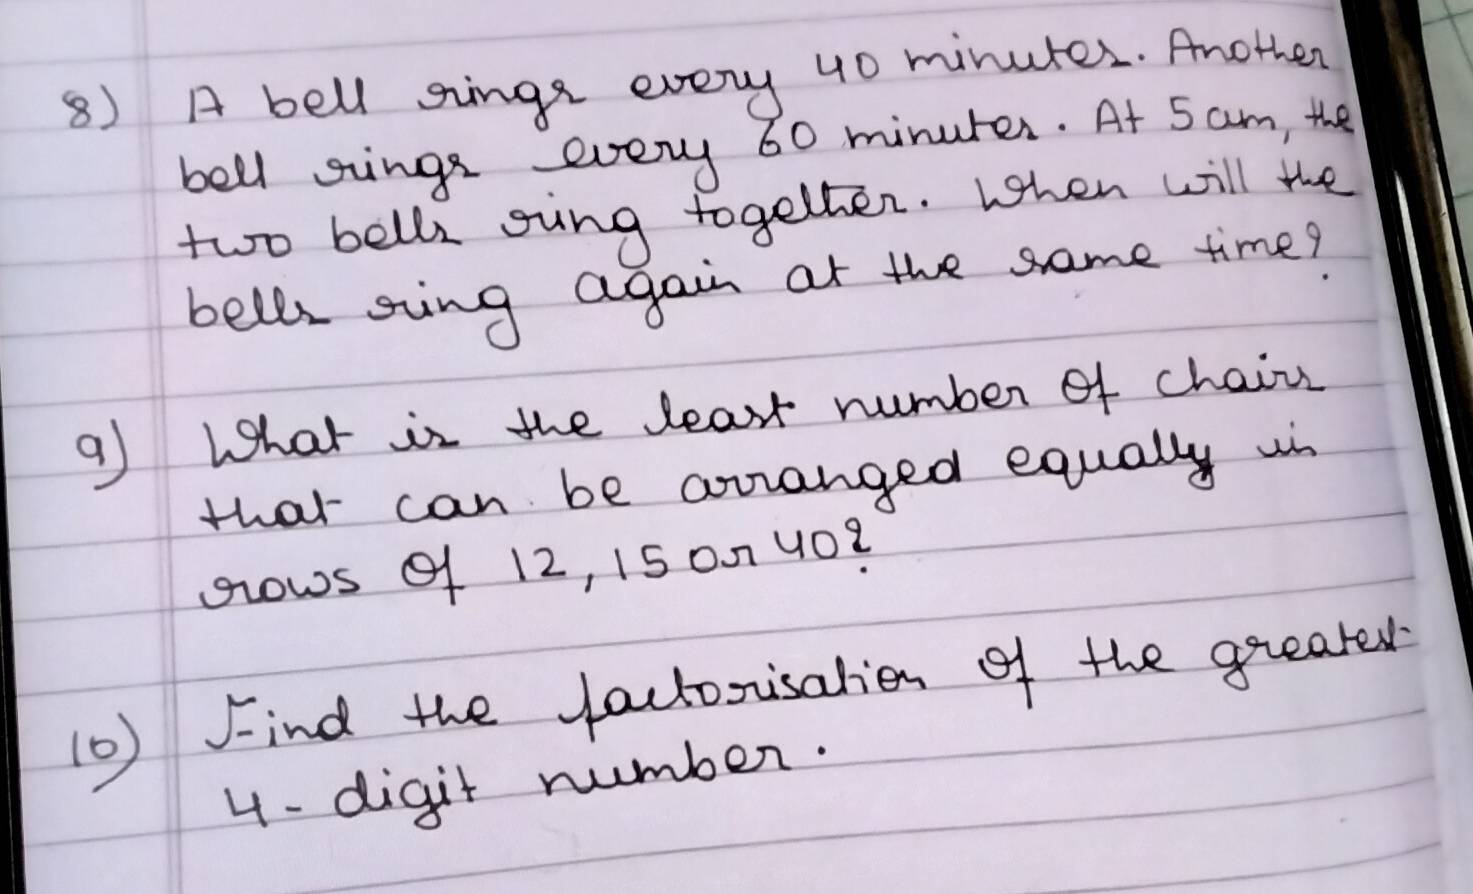 8) A bell rings every 40 minutes. Another
bell rings every 60 minutes. At 5 am, the
two bells ring together. When will the
bells ring again at the same time?
9) What is the least number of chairs
that can be arranged equally in
rows of 12, 15 or 40?
10) Find the factorisation of the greatest
4-digit number.